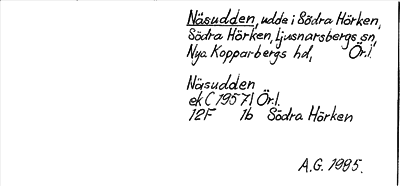 Näsudden, udde i Södra Hörken,
Södra Hörken, Ljusnarsbergs sn,
Nya Kopparbergs hd, Ör.l.
Näsudden
ek (1957) Ör.l.
12F 1b Södra Hörken
A.G. 1985.